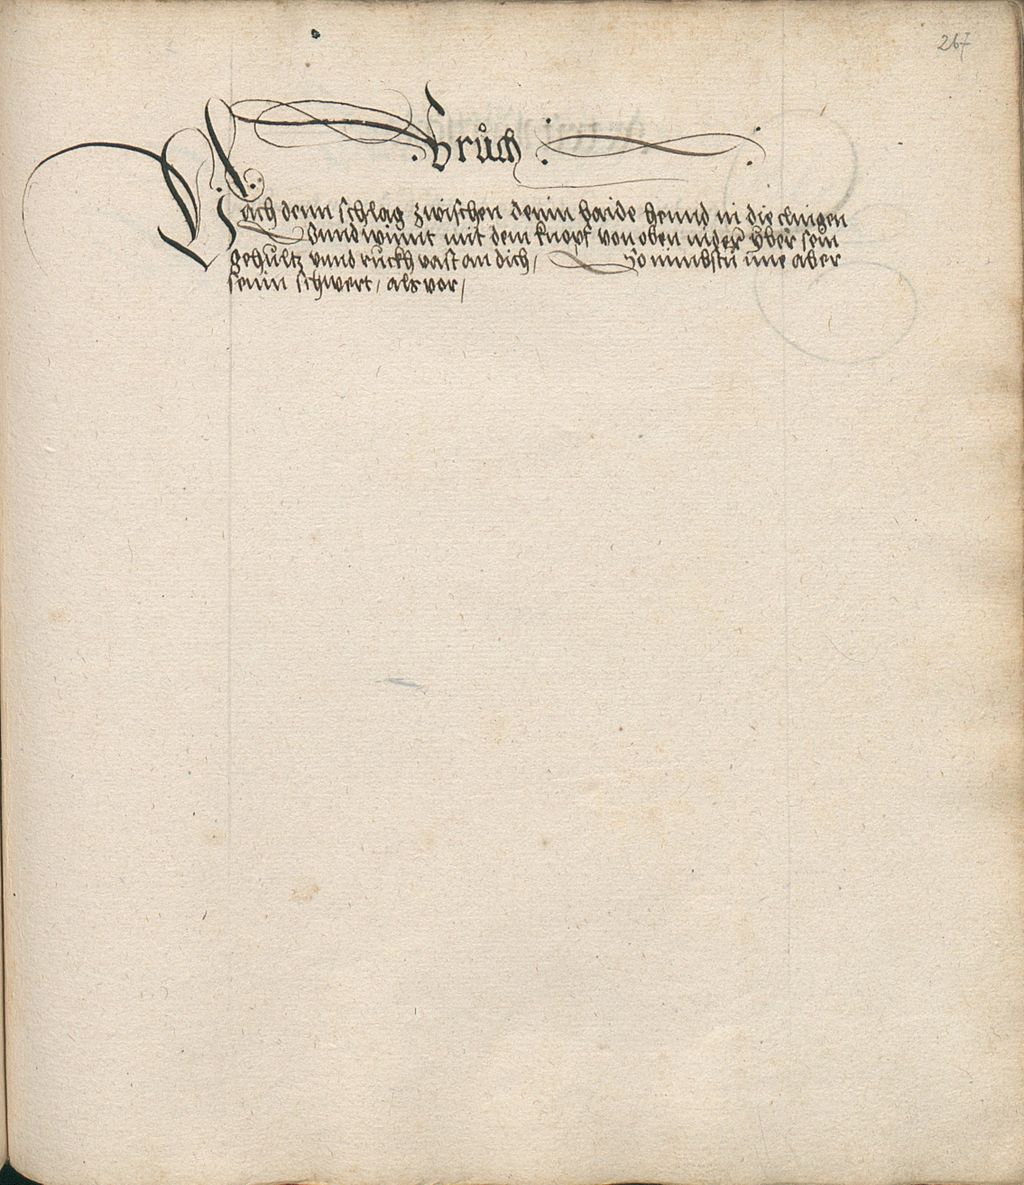 267
Brůch
Nach denn schlag zwischen deinn baide hennd in die clingen
Vnnd winnt mit dem knopf von oben nider Yber sein
gehűltz vnnd rűckh vast an dich / So nimbstu ime aber
seinn schwert / als vor /